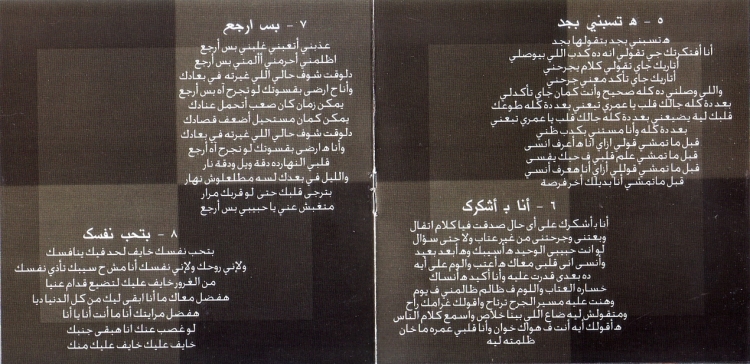 ٥ - هـ تسبني بجد
هـ تسبني بجد بتقولها بجد
أنا أفتكرتك جي تقولي انه ده كدب اللي بيوصلي
أتاريك جاي تقولي كلام بجرحني
أتاريك جاي تأكد معني جرحتي
واللي وصلني ده كله صحيح وأنت كمان جاي تأكدلي
بعد دة كله جالك قلب يا عمري تبعني بعد دة كله طوعك
قلبك لية يضيعني بعد دة كله جالك قلب يا عمري تبعني
بعد دة كله وأنا مستني يكدب ظني
قبل ما تمشي قولي ازاي أنا هـ أعرف انسى
قبل ما تمشي علم قلبي ف حبك يفسى
قبل ما تمشي قوللي أزاي أنا هعرف أنسي
قبل ماتمشي أنا بديلك أخر فرصة
٦ - أنا بـ أشكرك
أنا بـ أشكرك على أي حال صدقت فيا كلام اتقال
وبعتني وجرحتني من غير عتاب ولا حتى سؤال
لو انت حبيبي الوحيد هـ أسيبك وهـ أبعد بعيد
وأنسى اني قلبي معاك هـ أعتب والوم على أيه
ده بعدي قدرت عليه وأنا أكيد هـ أنساك
خساره العتاب واللوم ف ظالم ظالمني ف يوم
وهنت عليه مسير الجرح ترتاح واقولك غرامك راح
ومتقولش ليه ضاع اللي بينا خلاص وأسمع كلام الناس
هـ أقولك أيه أنت ف هواك خوان وأنا قلبي عمره ما خان
ظلمته ليه
٧ - بس ارجع
عذبني أتعبني غلبني بس أرجع
اظلمني أحرمني أألمني بس أرجع
دلوقت شوف حالي اللي غيرته في بعادك
وأنا ح ارضى بقسوتك لو تجرح أه بس أرجع
يمكن زمان كان صعب أتحمل عنادك
يمكن كمان مستحيل أضعف قصادك
دلوقت شوف حالي اللي غيرته في بعادك
وأنا هـ ارضى بقسوتك لو تجرح أه أرجع
قلبي النهارده دقة ويل ودقة نار
والليل في بعدك لسه مطلعلوش نهار
بترجي قلبك حتى لو قربك مرار
متغبش عني يا حبيبي بس أرجع
٨ - بتحب نفسك
بتحب نفسك خايف لحد فيك ينافسك
ولإني روحك ولإني نفسك أنا مش ح سيبك تأذي نفسك
من الغرور خايف عليك لتضيع قدام عنيا
هفضل معاك ما أنا ابقى ليك من كل الدنيا ديا
هفضل مرايتك أنا ما أنت أنا يا أنا
لو غصب عنك انا هبقى جنبك
خايف عليك خايف عليك منك